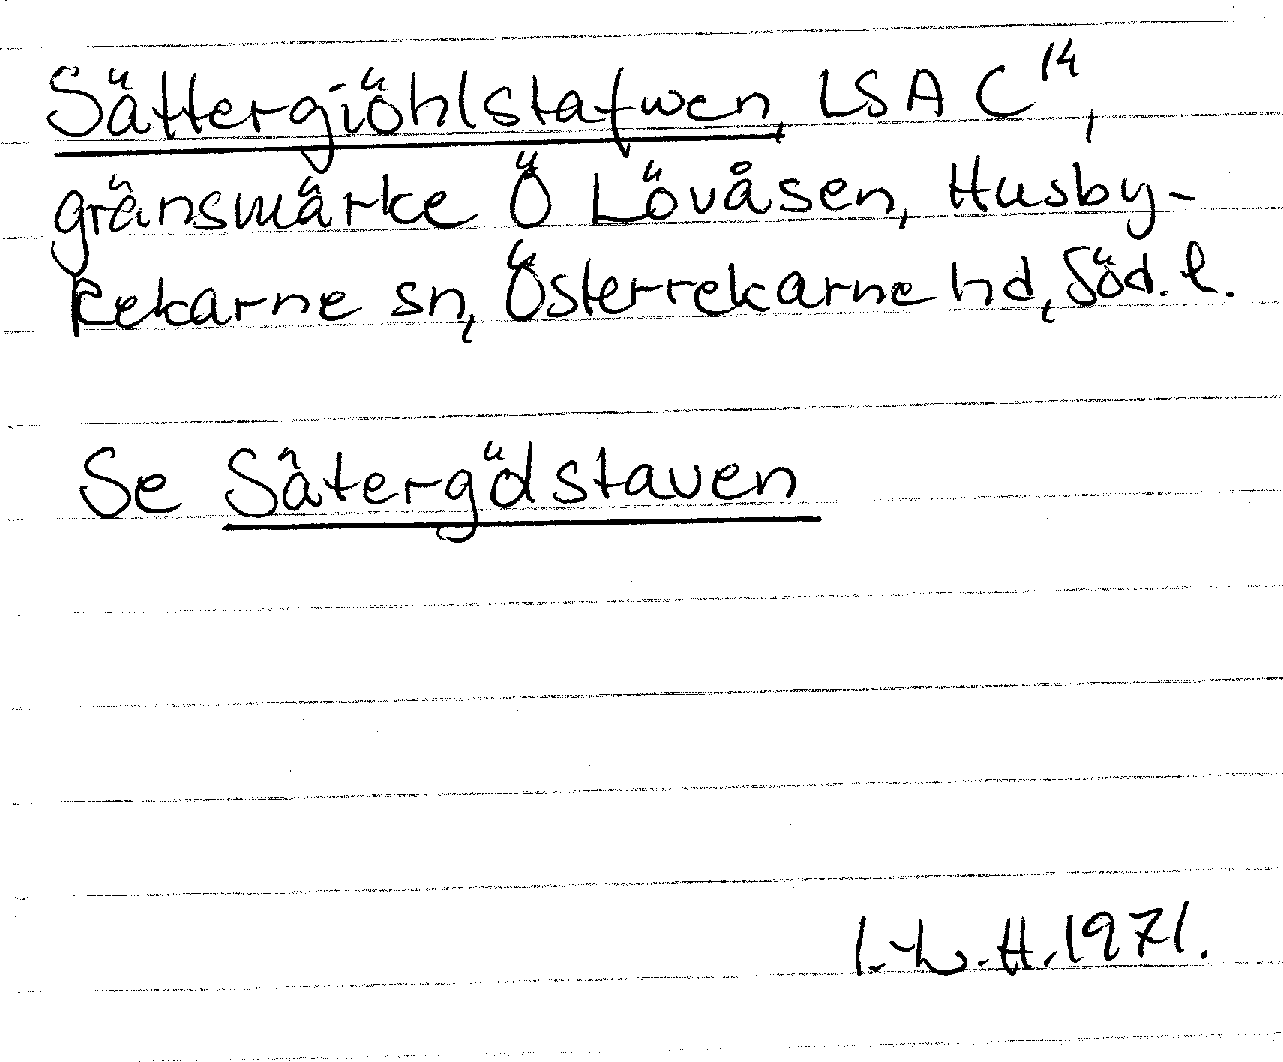 Sättergiöhlstafwen, LSA C¹⁴,
gränsmärke Ö Lövåsen, Husby-
Rekarne sn, Österrekarne hd, Söd. l.
Se Sätergödstaven
I.-L. H. 1971.